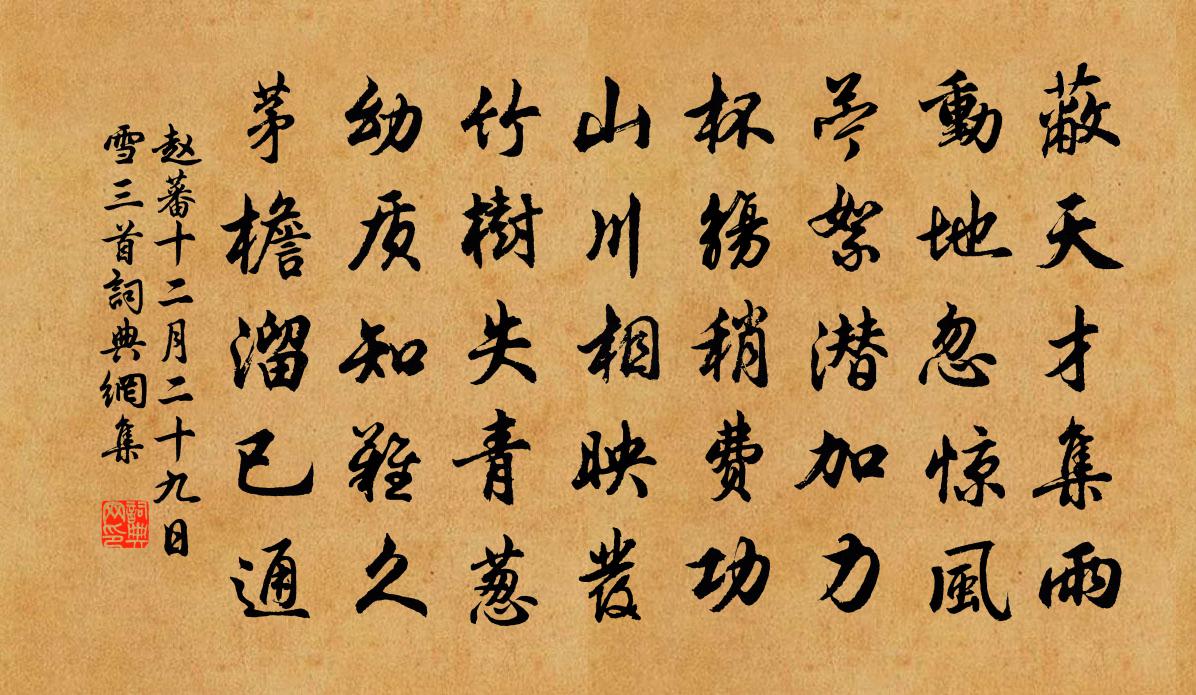 蔽天才集雨
動地忽惊風
芩絮潜加力
杯觴稍費功
山川相映發
竹樹失青葱
幼质知難久
茅檐溜已通
赵蕃十二月二十九日
雪三首詞典網集
詞典
网印